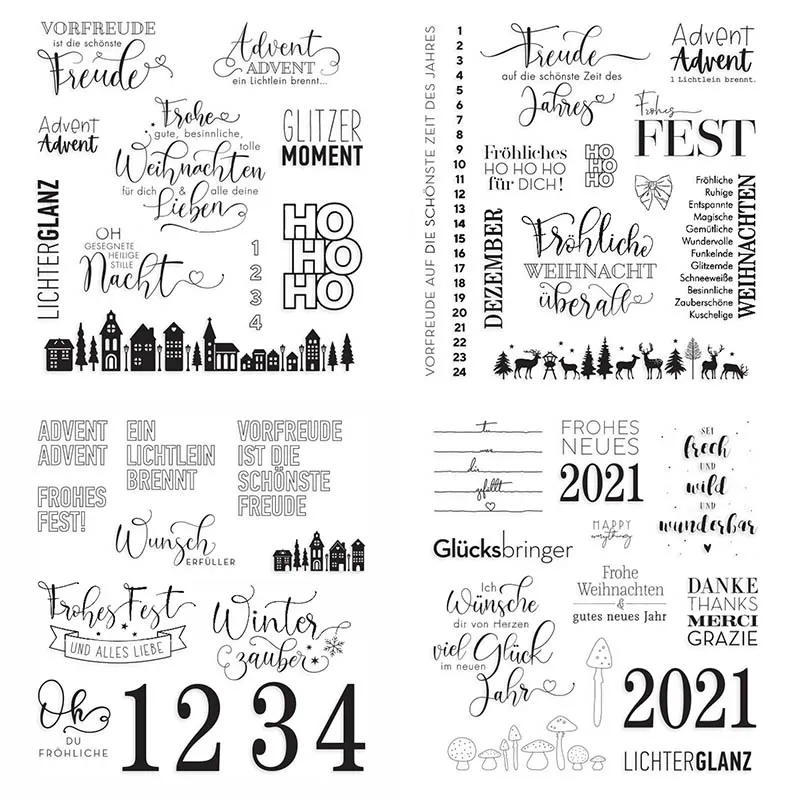 VORFREUDE
ist die schönste
Freude
Advent
ADVENT
ein Lichtlein brennt...
Advent
Advent
Frohe
gute, besinnliche,
tolle
Weihnachten
für dich & alle deine
Lieben
GLITZER
MOMENT
LICHTERGLANZ
OH
GESEGNETE
HEILIGE
STILLE
Nacht
1
2
3
4
HO
HO
HO
VORFREUDE AUF DIE SCHÖNSTE ZEIT DES JAHRES
1
2
3
4
5
6
7
8
9
10
11
12
13
14
15
16
17
18
19
20
21
22
23
24
Freude
auf die schönste Zeit des
Jahres
Advent
Advent
1 Lichtlein brennt.
Frohes
FEST
Fröhliches
HO HO HO
für DICH!
HO
HO
HO
DEZEMBER
Fröhliche
WEIHNACHT
überall
Fröhliche
Ruhige
Entspannte
Magische
Gemütliche
Wundervolle
Funkelnde
Glitzernde
Schneeweiße
Besinnliche
Zauberschöne
Kuschelige
WEIHNACHTEN
ADVENT
ADVENT
EIN
LICHTLEIN
BRENNT
VORFREUDE
IST DIE
SCHÖNSTE
FREUDE
FROHES
FEST!
Wunsch
ERFÜLLER
Frohes Fest
UND ALLES LIEBE
Winter
zauber
Oh
DU
FRÖHLICHE
1 2 3 4
tu
was
dir
gefällt
FROHES
NEUES
2021
SEI
frech
UND
wild
UND
wunderbar
Glücksbringer
HAPPY
everything
Ich
Wünsche
dir von Herzen
viel Glück
im neuen
Jahr
Frohe
Weihnachten
&
gutes neues Jahr
DANKE
THANKS
MERCI
GRAZIE
2021
LICHTERGLANZ